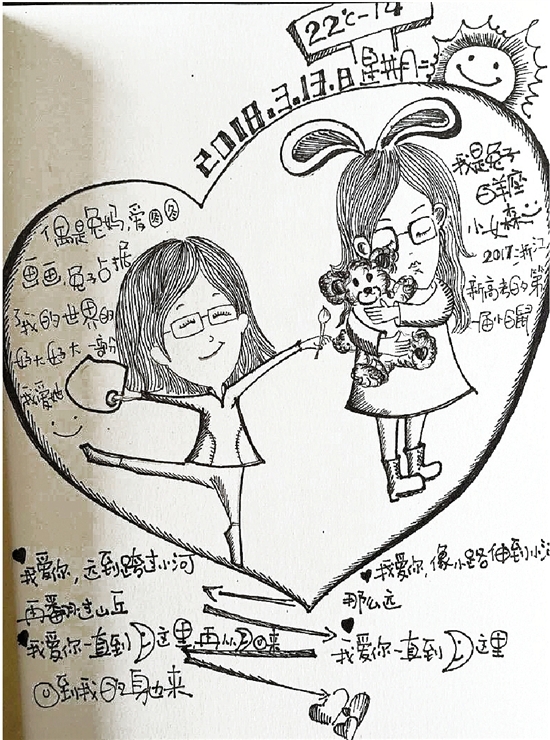 22℃-14
2018.3.13.日 星期二
偶是兔妈,爱
画画,兔子占据
了我的世界的
好大好大一部份
我爱她
我是兔子
白羊座
小女森
2017浙江
新高考的第
一届小白鼠
♥我爱你,远到跨过小河
再翻过山丘
♥我爱你,像小路伸到小河
那么远
♥我爱你一直到这里,再从回来
到我的身边来
♥我爱你一直到这里